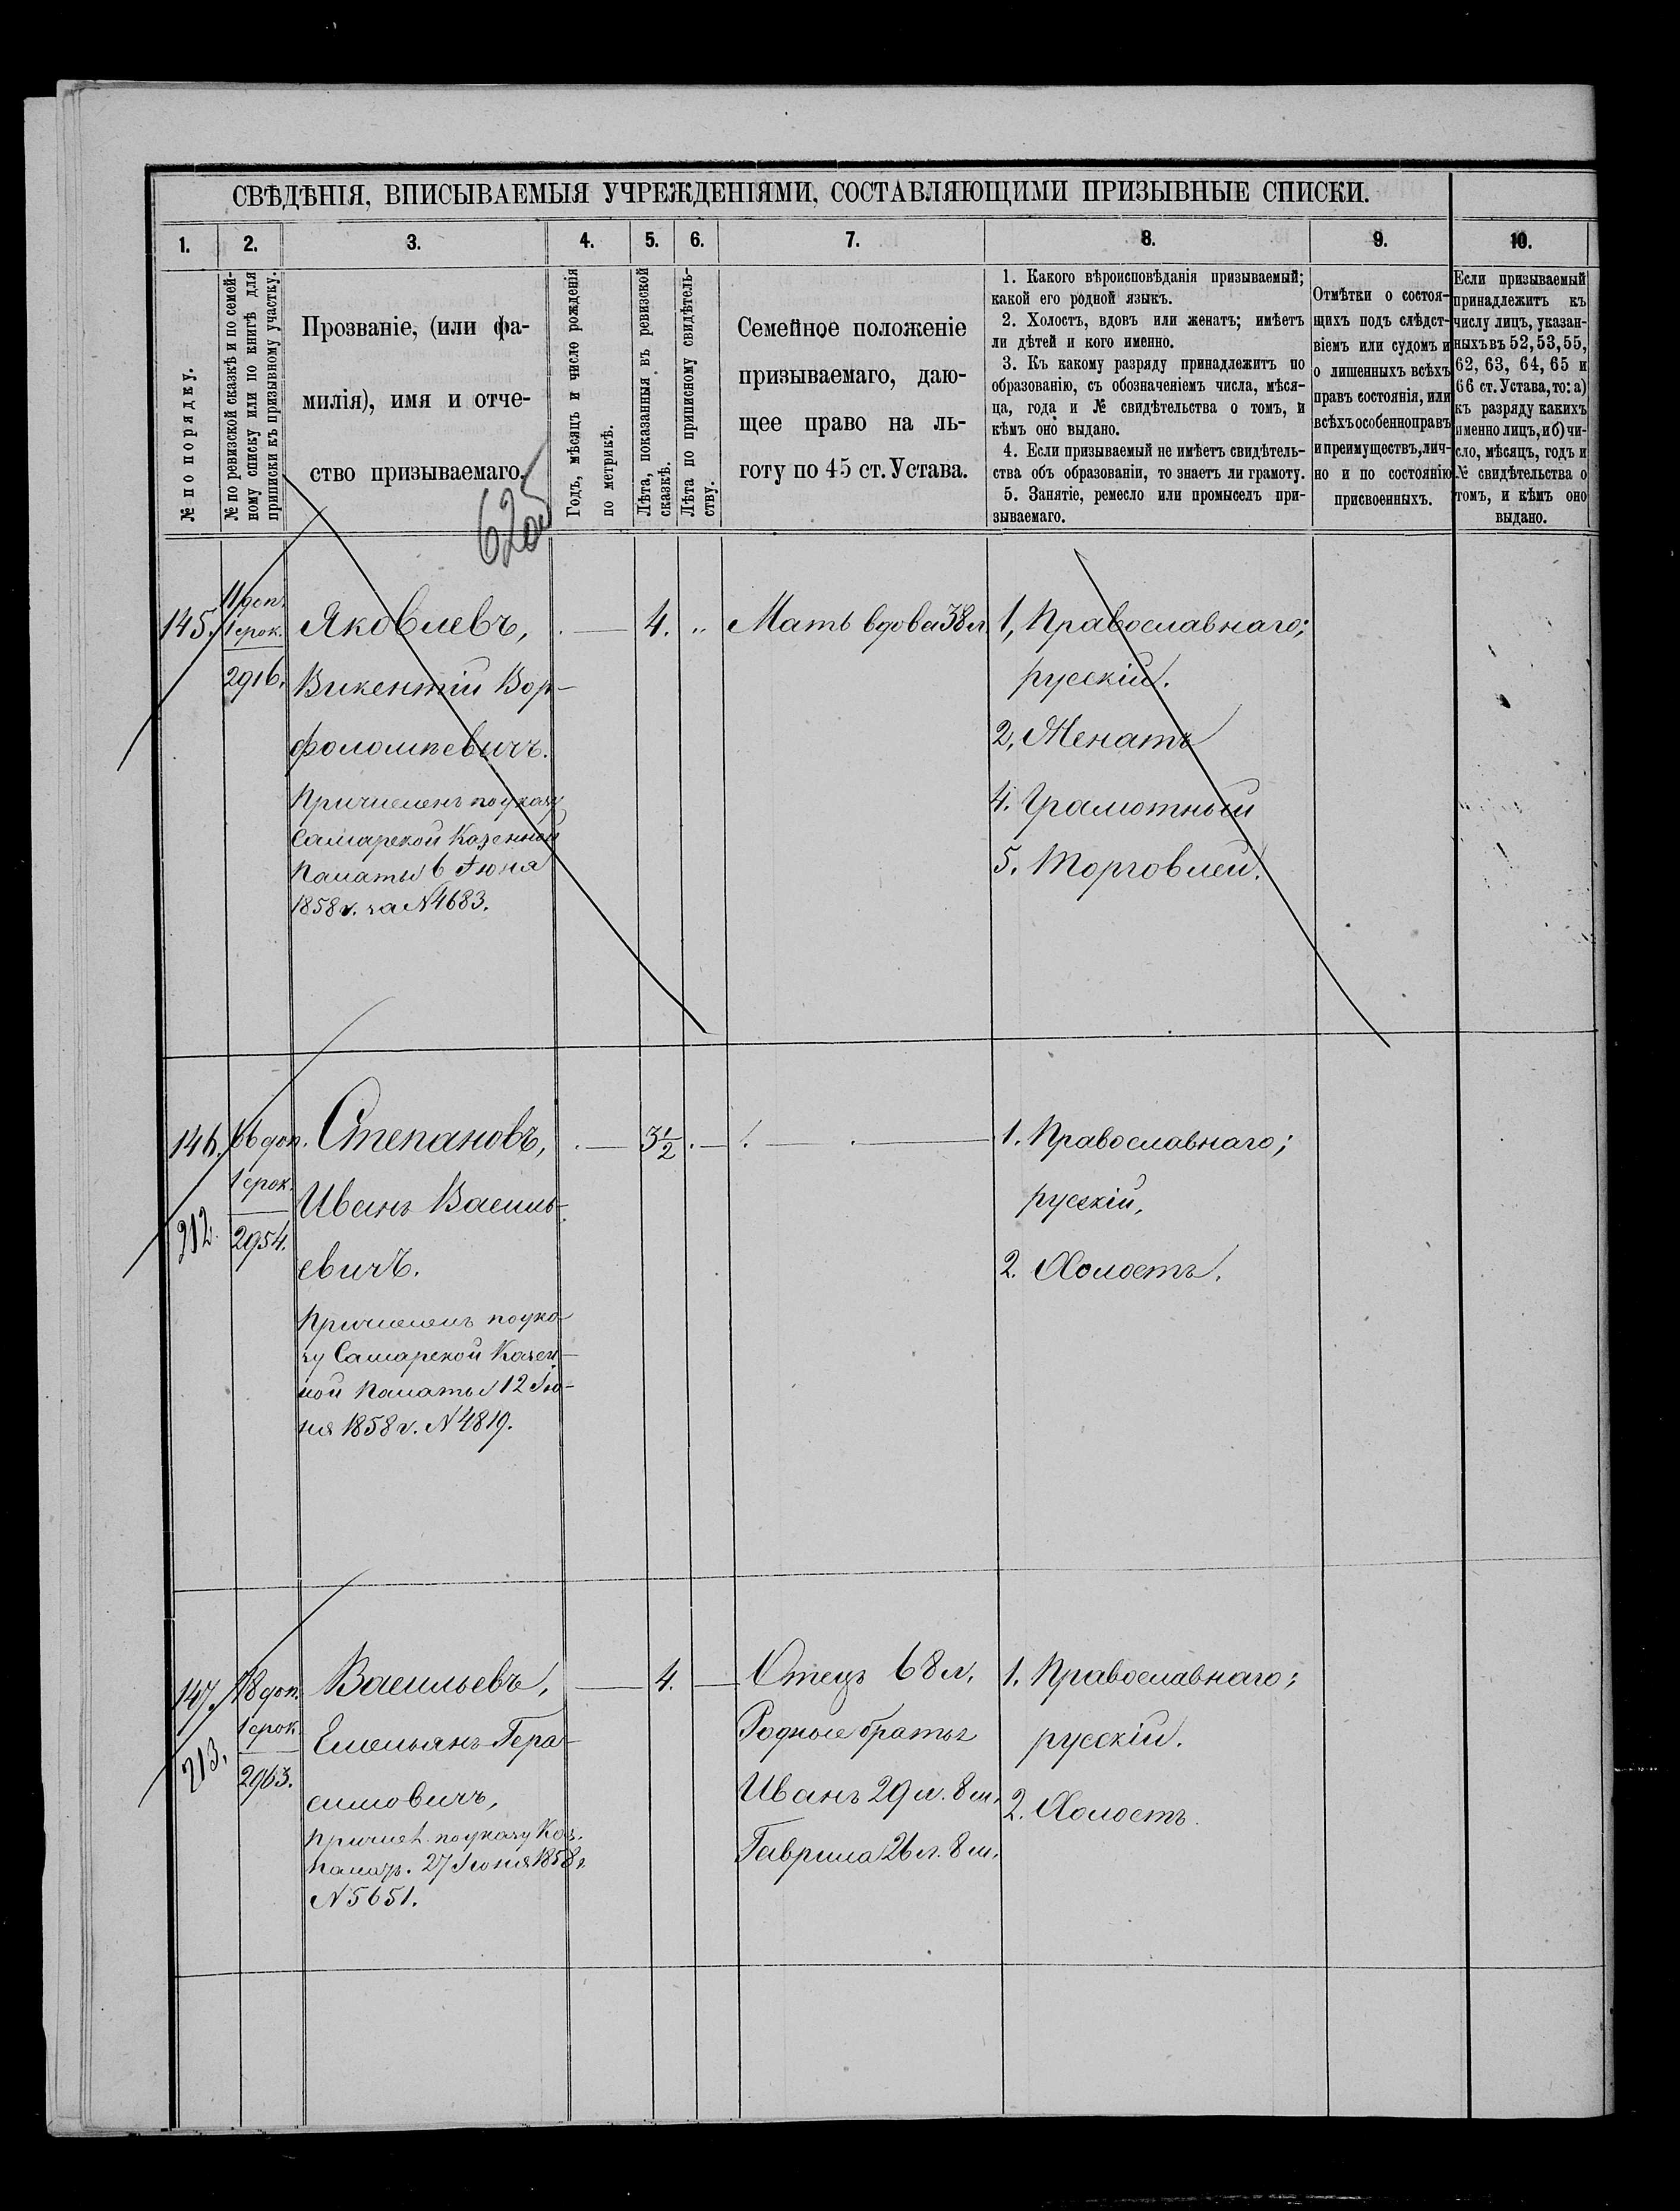 СВѢДѢНІЯ, ВПИСЫВАЕМЫЯ УЧРЕЖДЕНІЯМИ, СОСТАВЛЯЮЩИМИ ПРИЗЫВНЫЕ СПИСКИ.
1.
2.
3.
4.
5.
6.
7.
8.
9.
10.
№ по порядку.
№ по ревизской сказкѣ и по семей-
ному списку или по книгѣ для
приписки къ призывному участку.
Прозваніе, (или фа-
милія), имя и отче-
ство призываемаго.
Годъ, мѣсяцъ и число рожденія
по метрикѣ.
Лѣта, показанныя въ ревизской
сказкѣ.
Лѣта по приписному свидѣтель-
ству.
Семейное положеніе
призываемаго, даю-
щее право на ль-
готу по 45 ст. Устава.
1. Какого вѣроисповѣданія призываемый;
какой его родной языкъ.
2. Холостъ, вдовъ или женатъ; имѣетъ
ли дѣтей и кого именно.
3. Къ какому разряду принадлежитъ по
образованію, съ обозначеніемъ числа, мѣся-
ца, года и № свидѣтельства о томъ, и
кѣмъ оно выдано.
4. Если призываемый не имѣетъ свидѣтель-
ства объ образованіи, то знаетъ ли грамоту.
5. Занятіе, ремесло или промыселъ при-
зываемаго.
Отмѣтки о состоя-
щихъ подъ слѣдст-
віемъ или судомъ и
о лишенныхъ всѣхъ
правъ состоянія, или
всѣхъ особенно правъ
и преимуществъ, лич-
но и по состоянію
присвоенныхъ.
Если призываемый
принадлежитъ къ
числу лицъ, указан-
ныхъ въ 52, 53, 55,
62, 63, 64, 65 и
66 ст. Устава, то: а)
къ разряду какихъ
именно лицъ, и б) чи-
сло, мѣсяцъ, годъ и
№ свидѣтельства о
томъ, и кѣмъ оно
выдано.
145.
11 доп.
1 срок.
2916.
Яковлевъ,
Викентій Вар-
фоломѣевичъ.
Причисленъ по указу
Самарской Казенной
Палаты 6 Іюня
1858 г. за № 4683.
4.
Мать вдова 38 л.
1, Православнаго;
русскій.
2, Женатъ
4. Грамотный
5. Торговлей.
146.
212.
66 доп.
1 срок.
2954.
Степановъ,
Иванъ Василь-
евичъ.
Причисленъ по ука-
зу Самарской Казен-
ной Палаты 12 Ію-
ня 1858 г. № 4819.
3½
1. Православнаго;
русскій,
2. Холостъ.
147.
213.
78 доп.
1 срок.
2963.
Васильевъ,
Емельянъ Гера-
симовичъ,
Причисл. по указу Каз.
Палаты. 27 Іюня 1858 г.
№ 5651.
4.
Отецъ 68 л.
Родные братья
Иванъ 29 л. 8 м.
Гаврила 26 л. 8 м.
1. Православнаго;
русскій.
2. Холостъ.